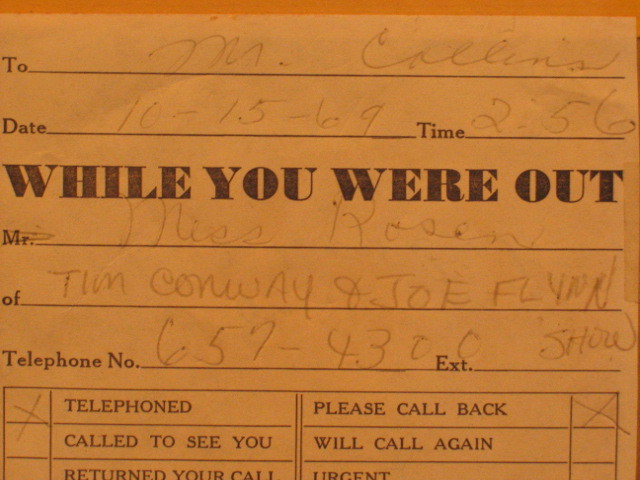 To Mr. Collins
Date 10-15-69 Time 2:56
WHILE YOU WERE OUT
Mr. Miss Rosen
of TIM CONWAY & JOE FLYNN SHOW
Telephone No. 657-4300 Ext.
X TELEPHONED PLEASE CALL BACK X
CALLED TO SEE YOU WILL CALL AGAIN
RETURNED YOUR CALL URGENT